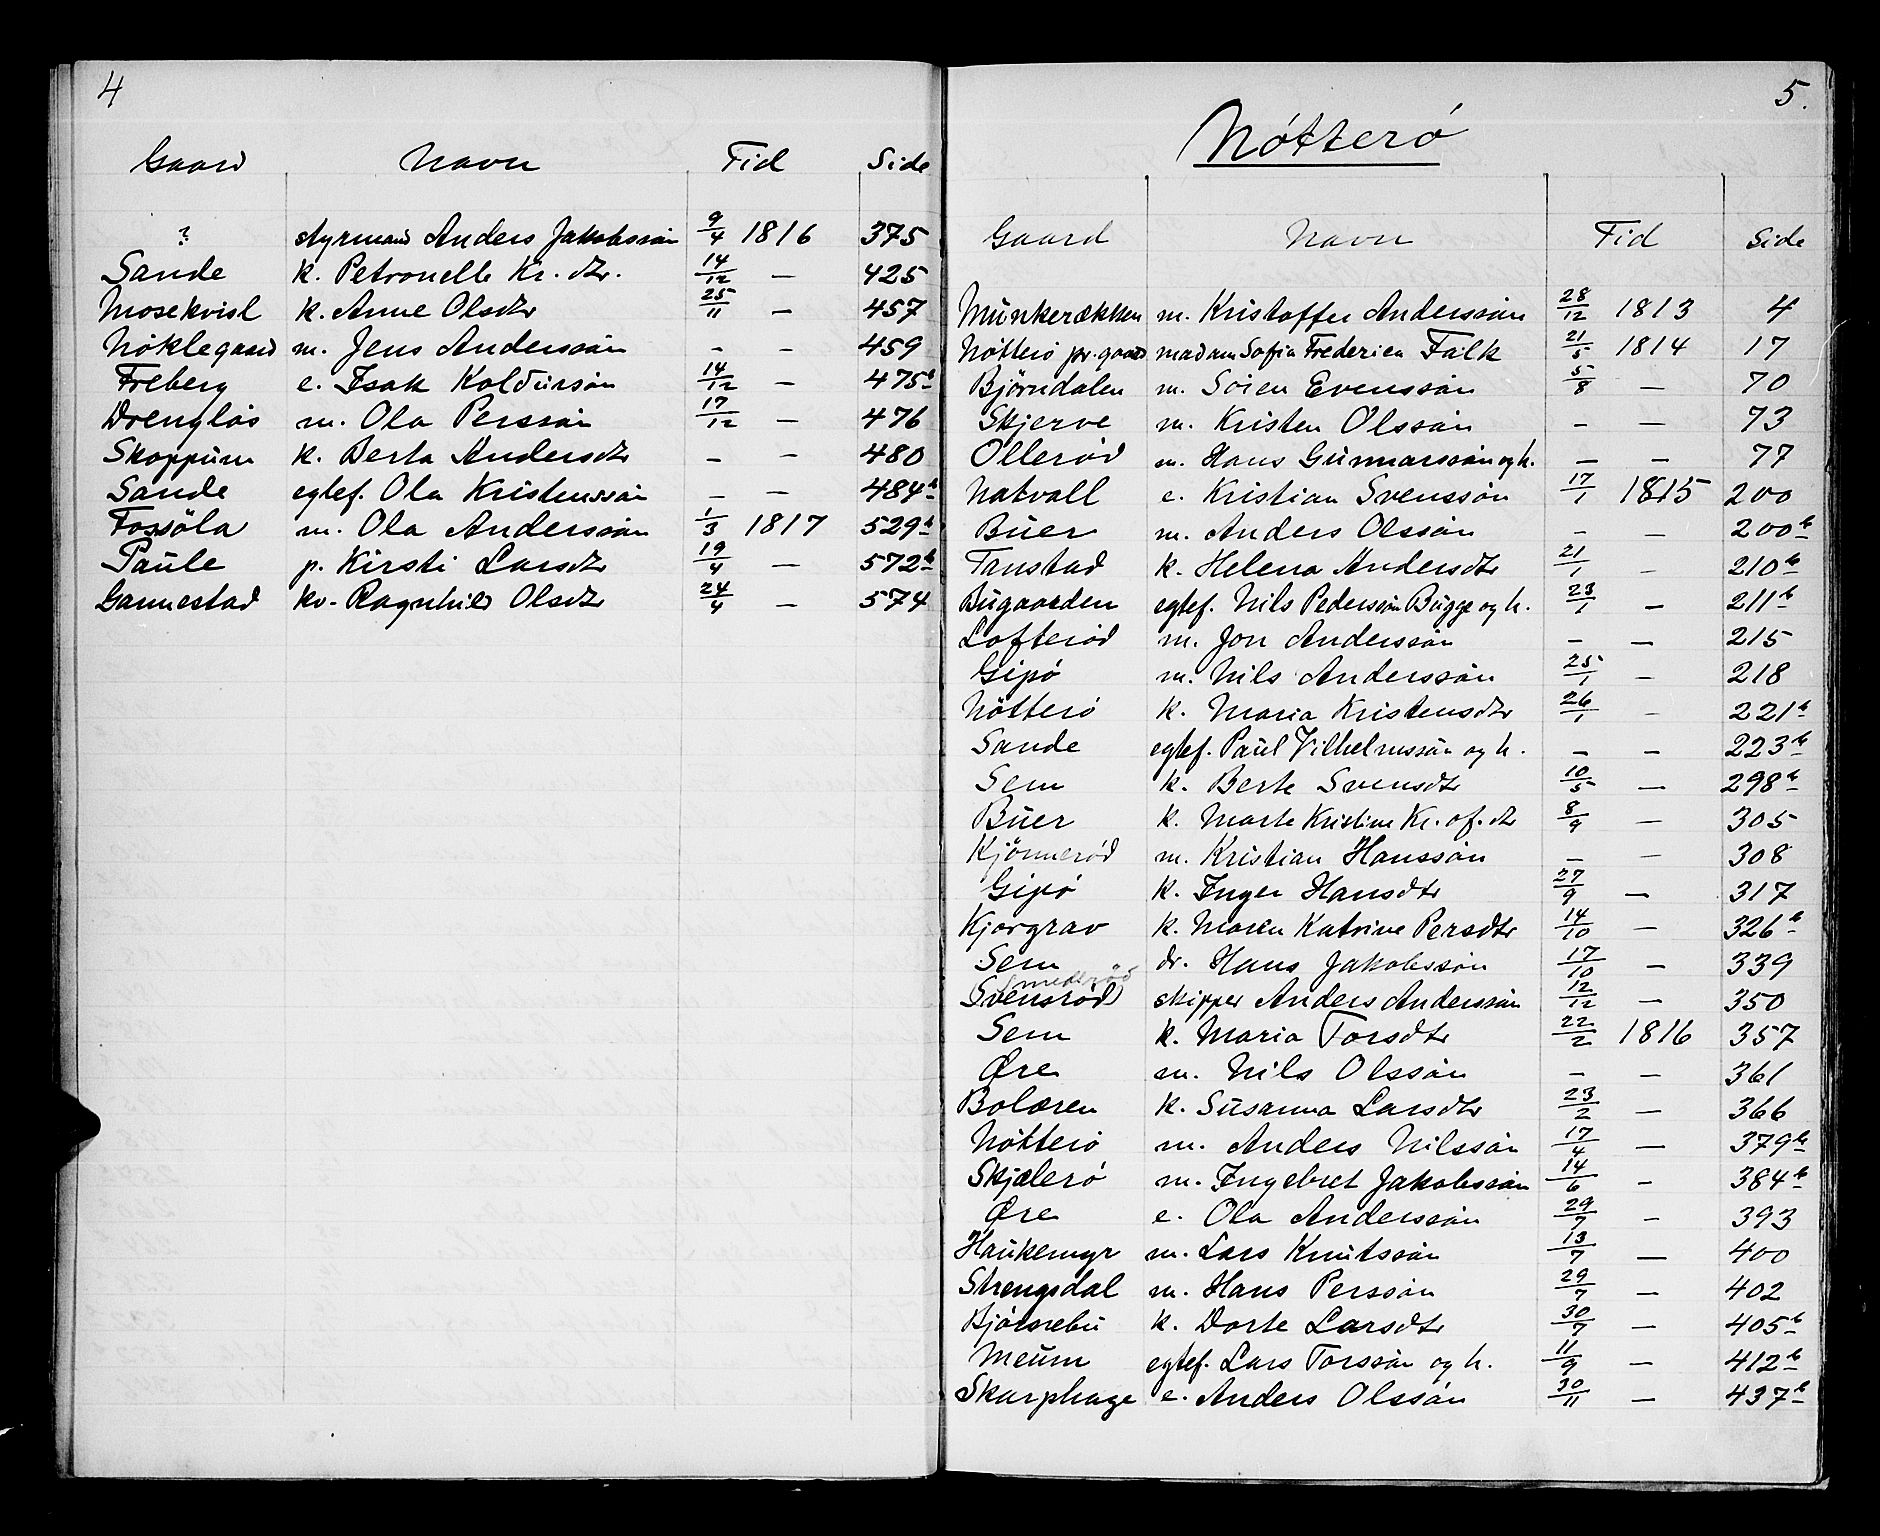 4
Gaard Navn Tid Side
? styrmand Anders Jakobssön 9/4 1816 375
Sande k. Petronelle Kr. dtr. 14/12 — 425
Mosekvisl k. Anne Olsdtr 25/11 — 457
Nöklegaard m. Jens Anderssön - - 459
Freberg e. Isak Koldürsön 14/12 — 475b
Drenglös m. Ola Perssön 17/12 — 476
Skoppüm k. Berta Andersdtr - - 480
Sande egtef. Ola Kristenssön - — 484b
Fossöla m. Ola Anderssön 1/3 1817 529b
Paüle p. Kirsti Larsdtr 19/4 — 572b
Gannestad kv. Ragnhild Olsdtr 24/4 — 574
5.
Nötterö
Gaard Navn Tid Side
Münkerækken m. Kristoffer Anderssön 28/12 1813 4
Nötterö pr.gaard madam Sofia Frederica Falk 21/5 1814 17
Björndalen m. Sören Evenssön 5/8 — 70
Skjerve m. Kristen Olssön - — 73
Ollerød m. Hans Günnarssön og h. — — 77
Natvall e. Kristian Svenssön 17/1 1815 200
Büer m. Anders Olssön - — 200b
Tanstad k. Helena Andersdtr 21/1 - 210b
Bügaarden egtef. Nils Pederssön Bügge og h. 23/1 — 211b
Lofteröd m. Jon Anderssön - — 215
Gipö m. Nils Anderssön 25/1 - 218
Nötterö k. Maria Kristensdtr 26/1 - 221b
Sande egtef. Paül Vilhelmssön og h. — — 223b
Sem k. Berte Svensdtr 10/5 — 298b
Büer k. Marte Kristine Kr.of.dtr 8/9 — 305
Kjönneröd m. Kristian Hanssön - — 308
Gipö k. Inger Hansdtr 27/9 — 317
Kjorgrav k. Maren Katrine Persdtr 14/10 — 326b
Sem dr. Hans Jakobssön 17/10 — 339
Smederöd
Svensröd skipper Anders Anderssön 12/12 — 350
Sem k. Maria Torsdtr 22/2 1816 357
Øre m. Nils Olssön - — 361
Bolæren k. Süsanna Larsdtr 23/2 — 366
Nötterö m. Anders Nilssön 17/4 — 379b
Skjælerö m. Ingebret Jakobssön 14/6 - 384b
Øre e. Ola Anderssön 29/7 - 393
Haükemyr m. Lars Knütssön 13/7 — 400
Strengsdal m. Hans Perssön 29/7 — 402
Björnebü k. Dorte Larsdtr 30/7 — 405b
Meüm egtef. Lars Torssön og h. 11/9 — 412b
Skarphage e. Anders Olssön 30/11 — 437b